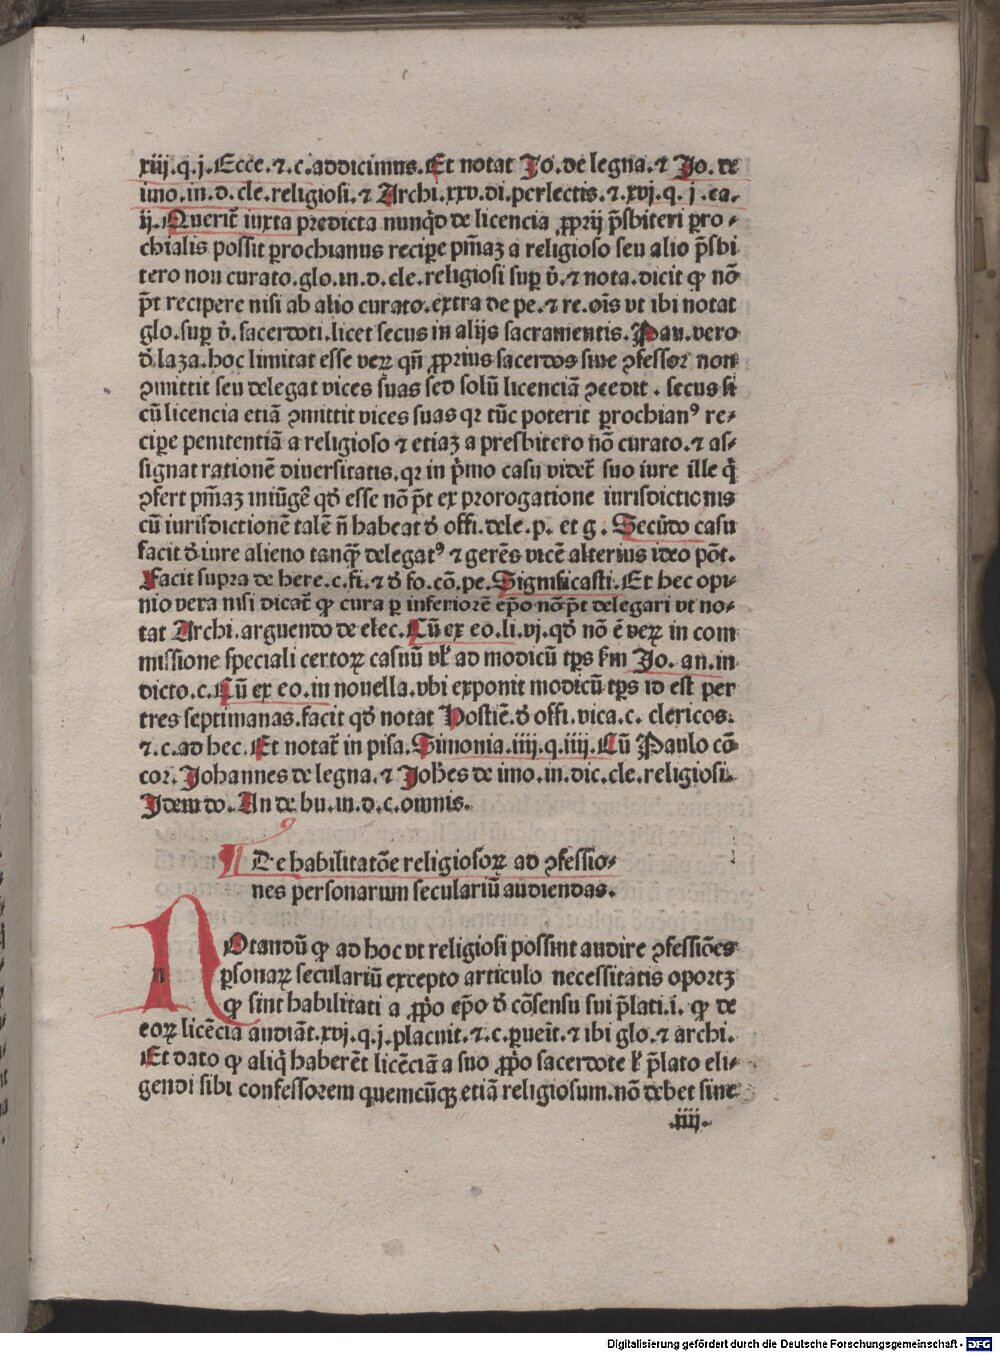 xiij.q.j.Ecce.⁊.c.addicimus.Et notat Jo.de legna.⁊ Jo.de
imo.in.d.cle.religiosi.⁊ Archi.xxv.di.perlectis.⁊.xvj.q.j.ea.
ij.Querit̄ iuxta predicta nunqͥd de licencia ꝓprij p̄sbiteri ꝑro⸗
chialis possit ꝑrochianus recipe pn̄iaꝫ a religioso seu alio p̄sbi
tero non curato.glo.in.d.cle.religiosi suꝑ v̇.⁊ nota.dicit ꝙ nō
p̄t recipere nisi ab alio curato.extra de pe.⁊ re.oīs vt ibi notat
glo.suꝑ v̇.sacerdoti.licet secus in alijs sacramentis.Pau.vero
d̓ laza.hoc limitat esse veꝝ qn̄ ꝓprius sacerdos siue ꝯfessor non
ꝯmittit seu delegat vices suas sed solū licenciā ꝯcedit.secus si
cū licencia etiā ꝯmittit vices suas qꝛ tūc poterit ꝑrochianꝰ re⸗
cipe penitentiā a religioso ⁊ etiaꝫ a presbitero nō curato.⁊ as⸗
signat rationē diuersitatis.qꝛ in pͥmo casu videt̄ suo iure ille qͥ
ꝯfert pn̄iaꝫ iniūgē qd̓ esse nō p̄t ex prorogatione iurisdictionis
cū iurisdictionē talē n̄ habeat d̓ offi.dele.p. et g. Secūdo casu
facit d̓ iure alieno tanqͣ̄ delegatꝰ ⁊ gerēs vicē alterius ideo pōt.
Facit supra de here.c.fi.⁊ d̓ fo.cō.pe.Significasti.Et hec opi⸗
nio vera nisi dicat̄ ꝙ cura ꝑ inferiorē ep̄o nō p̄t delegari vt no⸗
tat Archi.arguendo de elec.Cū ex eo.li.vj.qd̓ nō ē veꝝ in com
missione speciali certoꝝ casuū vꝉ ad modicū tp̄s sm̄ Jo. an.in
dicto.c.Cū ex eo.in nouella.vbi exponit modicū tp̄s id est per
tres septimanas.facit qd̓ notat Hostiē.d̓ offi.vica.c. clericos.
⁊.c.ad hec.Et notat̄ in pisa.Simonia.iiij.q.iiij.Cū Paulo cō
cor.Johannes de legna.⁊ Joh̄es de imo.in.dic.cle.religiosi.
Jdem do.An de bu.in.d.c.omnis.
De habilitatōe religiosoꝝ ad ꝯfessio⸗
nes personarum seculariū audiendas.
NOtandū ꝙ ad hoc vt religiosi possint audire ꝯfessiōes
ꝑsonaꝝ seculariū excepto articulo necessitatis oportꝫ
ꝙ sint habilitati a ꝓp̄o ep̄o d̓ cōsensu sui p̄lati.i. ꝙ de
eoꝝ licēcia audiāt.xvj.q.j.placuit.⁊.c.ꝑueīt.⁊ ibi glo.⁊ archi.
Et dato ꝙ aliqͥ haberēt licēciā a suo ꝓp̄o sacerdote ꝉ p̄lato eli⸗
gendi sibi confessorem quemcūqꝫ etiā religiosum.nō debet sine
.iiij.
Digitalisierung gefördert durch die Deutsche Forschungsgemeinschaft - DFG